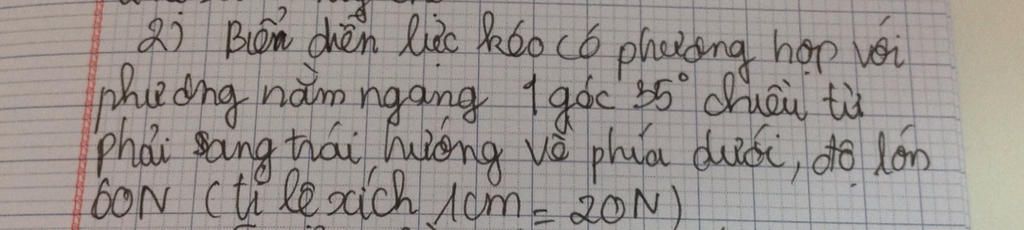 2) Biển diễn lực kéo có phương hợp với
phương nằm ngang 1 góc 35° chiều từ
phải sang trái, hướng về phía dưới, độ lớn
60N (tỉ lệ xích 1cm = 20N)